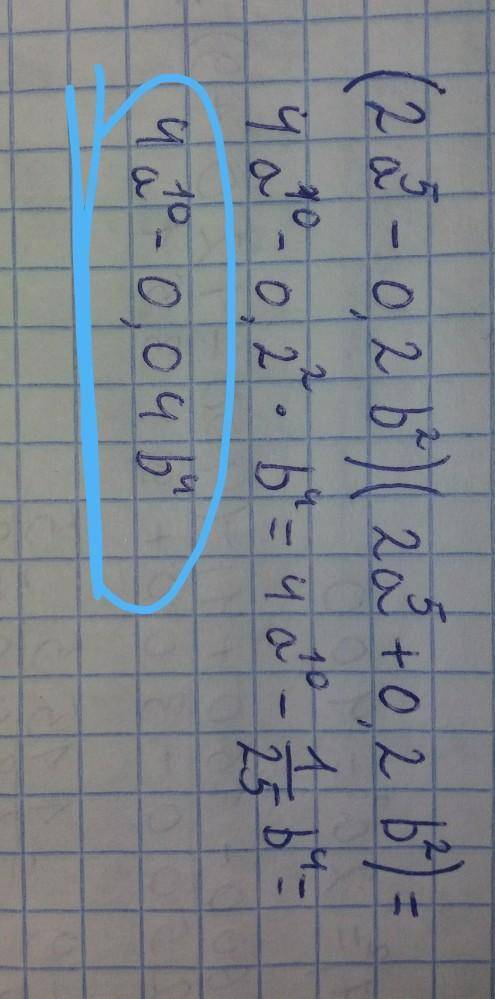 (2a⁵ - 0,2b²)(2a⁵ + 0,2b²) =
4a¹⁰ - 0,2² · b⁴ = 4a¹⁰ - 1/25 b⁴ =
4a¹⁰ - 0,04b⁴